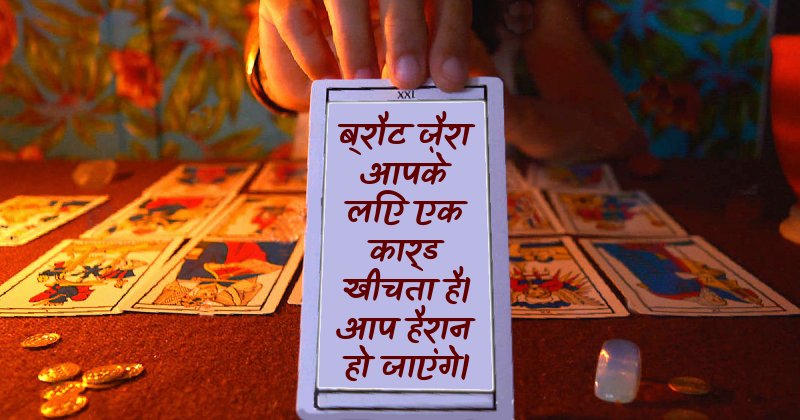 XXI
ब्रौट ज़ैरा
आपके
लिए एक
कार्ड
खीचता है।
आप हैरान
हो जाएंगे।